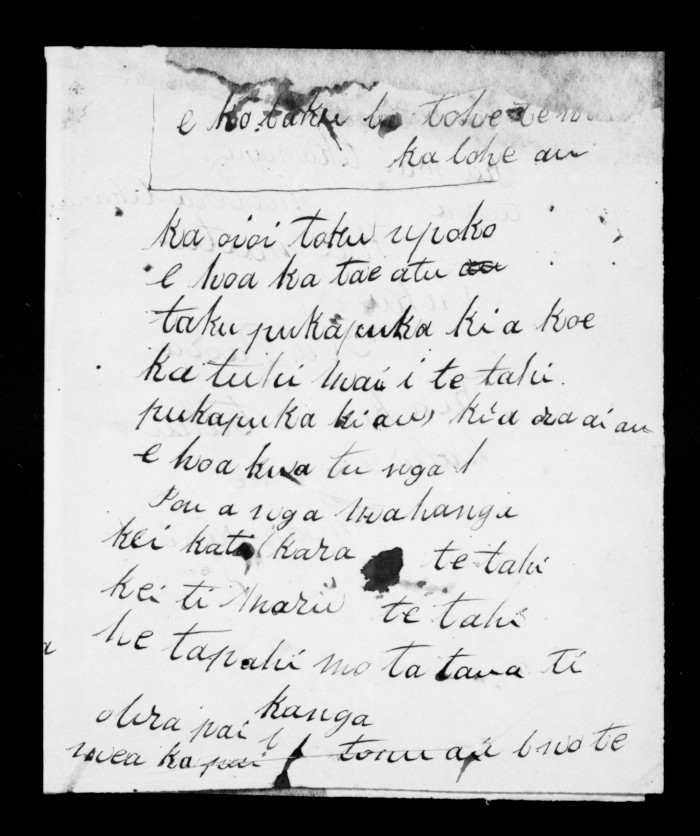 e ko taku tohe
ka tohe au
ka oioi toku upoko
e hoa ka tae atu
taku pukapuka ki a koe
ka tuhi mai i te tahi
pukapuka ki au, kia ora ai au
e hoa kua tu nga
Pou a nga mahanga
kei kati kara te tahi
kei ti maru te tahi
he tapahi mo ta taua ti
kanga
pai
ka pai